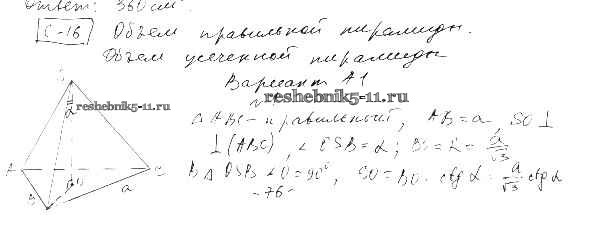 Ответ: 360 см³
С-16 Объем правильной пирамиды.
Объем усеченной пирамиды
Вариант А1
reshebnik5-11.ru
reshebnik5-11.ru
S
α
A
B
C
O
a
△ABC - правильный, AB = a, SO ⊥
⊥ (ABC), ∠OSB = α; BO = R = a/√3
В △OSB ∠O = 90°, SO = BO · ctg α = a/√3 ctg α
- 76 -